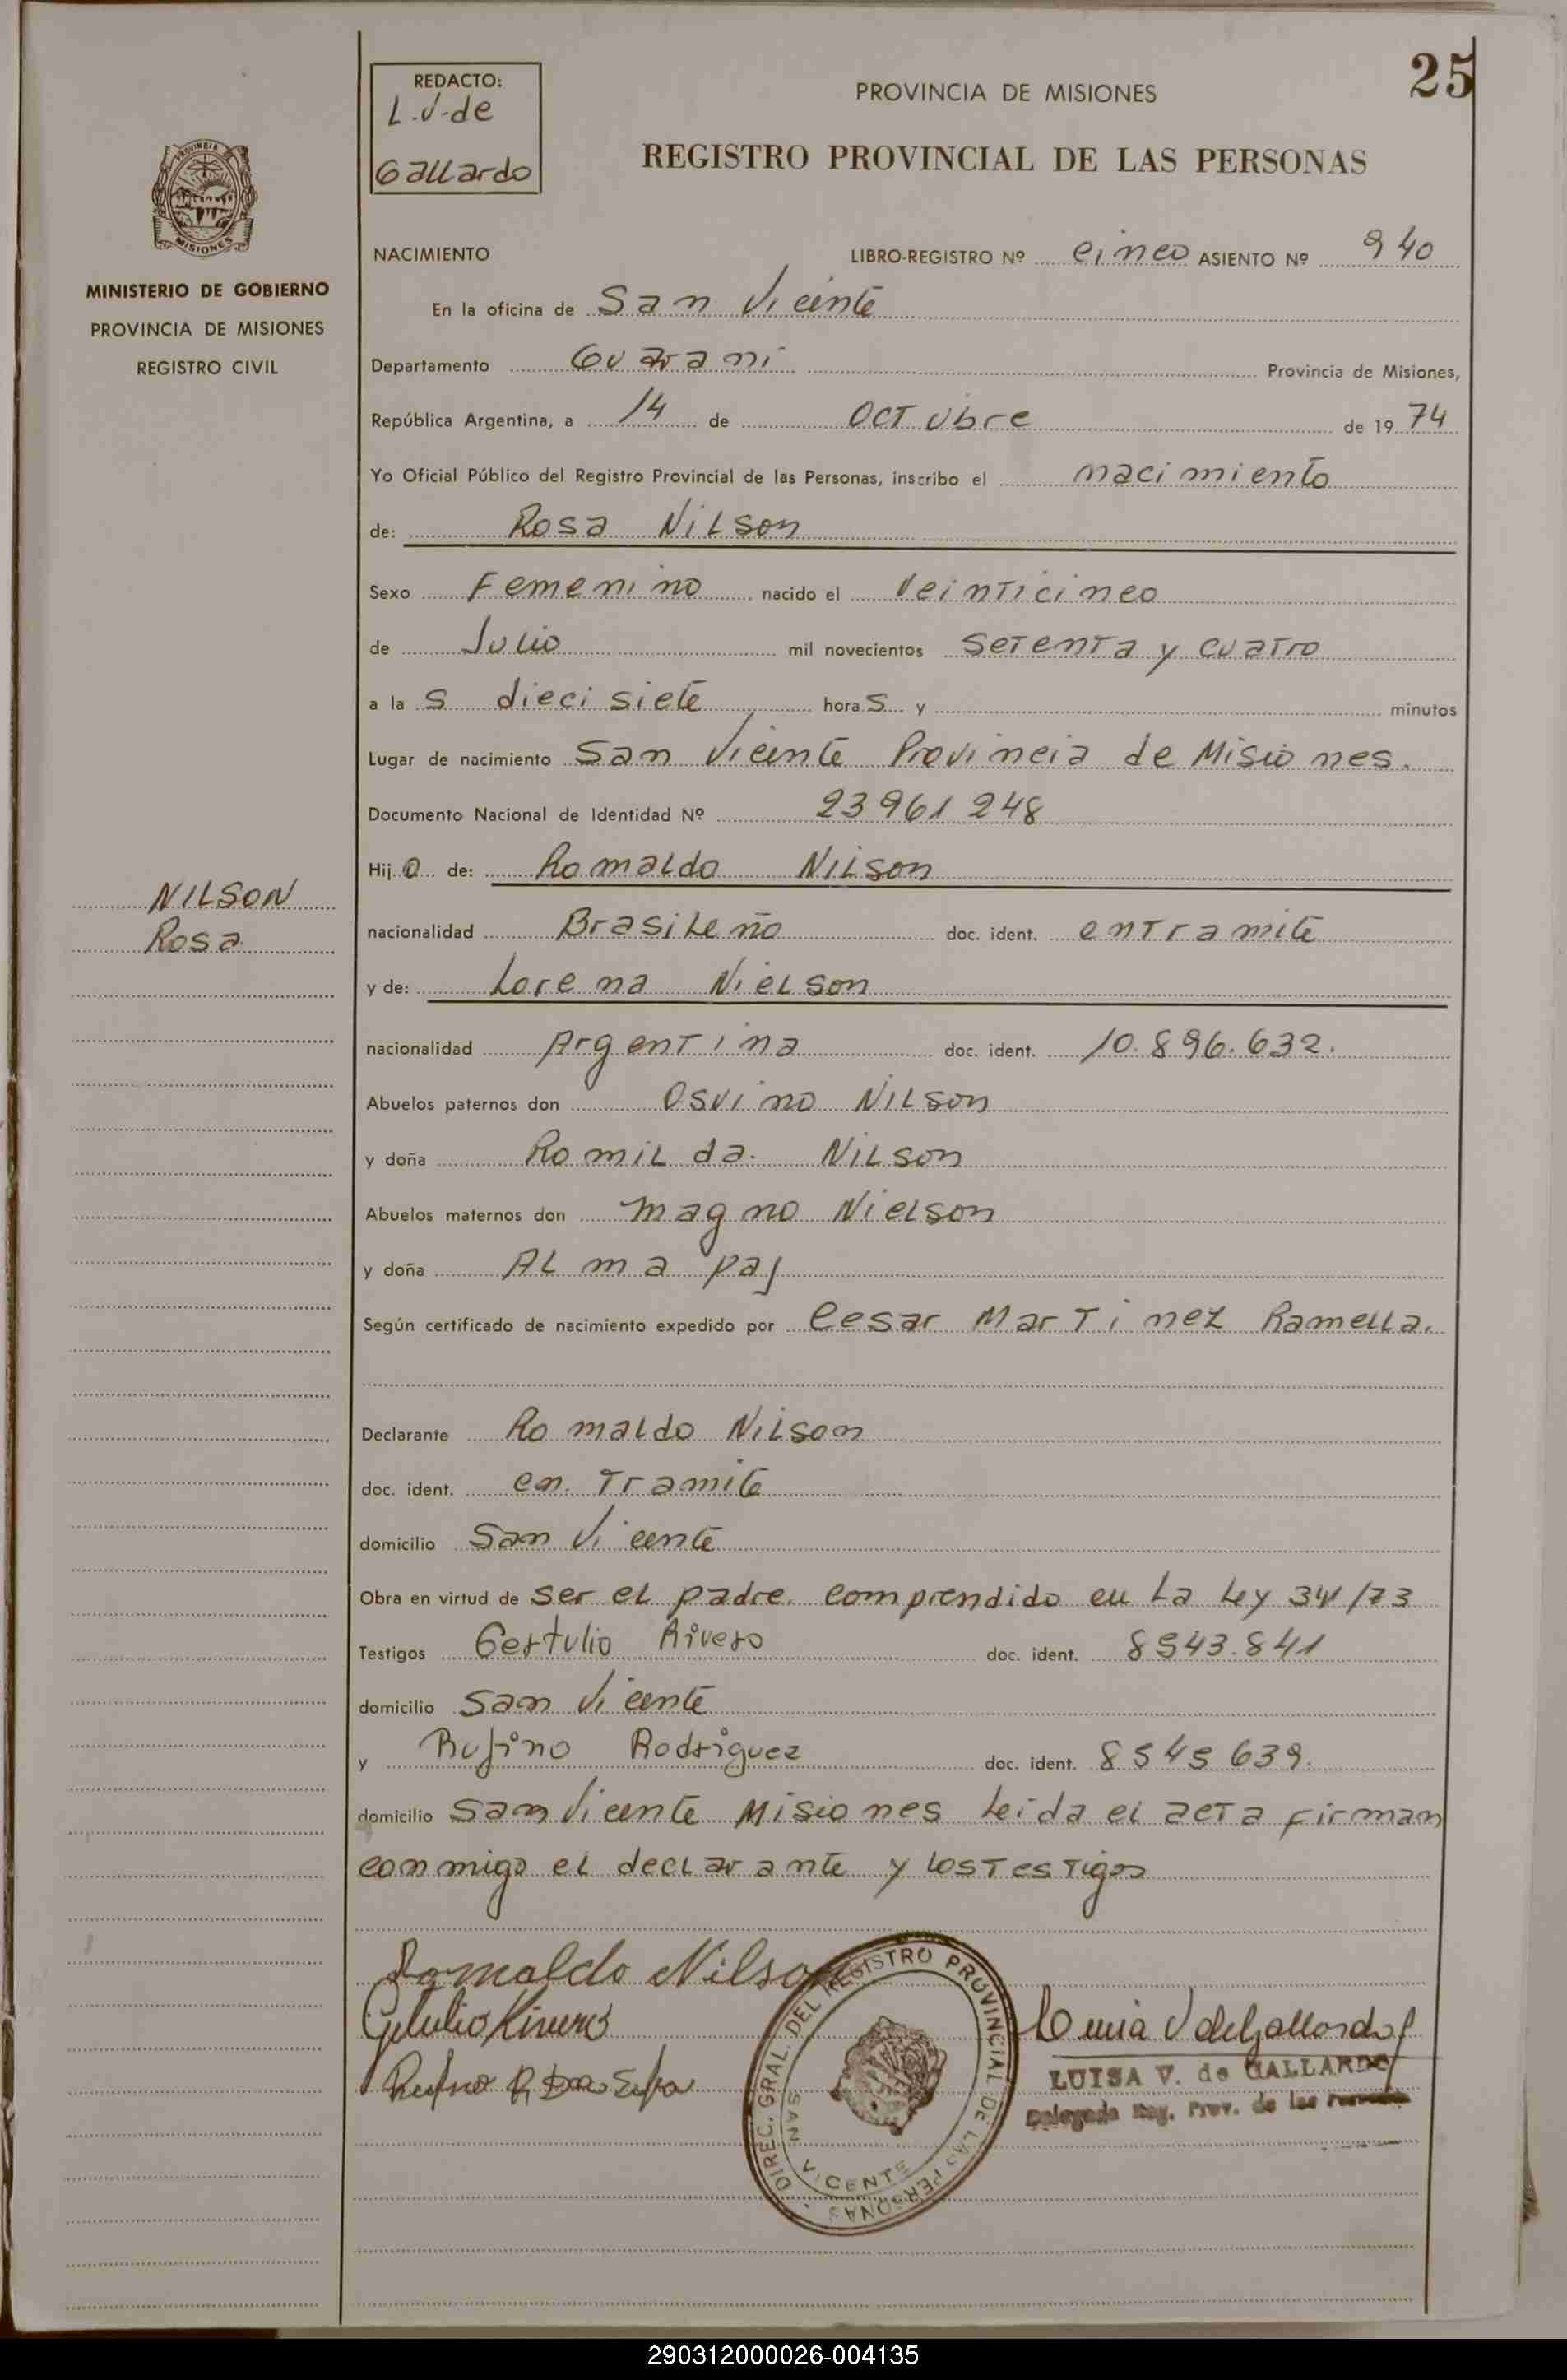 25
REDACTO:
L.V. de
Gallardo
PROVINCIA DE MISIONES
REGISTRO PROVINCIAL DE LAS PERSONAS
PROVINCIA
MISIONES
MINISTERIO DE GOBIERNO
PROVINCIA DE MISIONES
REGISTRO CIVIL
NACIMIENTO LIBRO-REGISTRO Nº cinco ASIENTO Nº 940
En la oficina de San Vicente
Departamento Guarani Provincia de Misiones,
República Argentina, a 14 de Octubre de 19 74
Yo Oficial Público del Registro Provincial de las Personas, inscribo el nacimiento
de: Rosa Nilson
Sexo Femenino nacido el Veinticinco
de Julio mil novecientos setenta y cuatro
a la s diecisiete hora s y minutos
Lugar de nacimiento San Vicente Provincia de Misiones.
Documento Nacional de Identidad Nº 23961248
Hij a de: Romaldo Nilson
NILSON
Rosa
nacionalidad Brasileño doc. ident. entramite
y de: Lorena Nielson
nacionalidad Argentina doc. ident. 10.896.632.
Abuelos paternos don Osvino Nilson
y doña Romilda. Nilson
Abuelos maternos don Magno Nielson
y doña Alma
Según certificado de nacimiento expedido por Cesar Martinez Ramella.
Declarante Romaldo Nilson
doc. ident. en Tramite
domicilio San Vicente
Obra en virtud de ser el padre. comprendido en La Ley /73
Testigos Gertulio Rivero doc. ident. 8543.841
domicilio San Vicente
y Rufino Rodriguez doc. ident. 8545639.
domicilio San Vicente Misiones Leida el acta firman
conmigo el declarante y los Testigos
Romaldo Nilson
Getulio Rivero
DIREC. GRAL. DEL REGISTRO PROVINCIAL DE LAS PERSONAS
SAN VICENTE
Luisa V de Gallardo
LUISA V. de GALLARDO
Delegada Reg. Prov. de las Personas
290312000026-004135